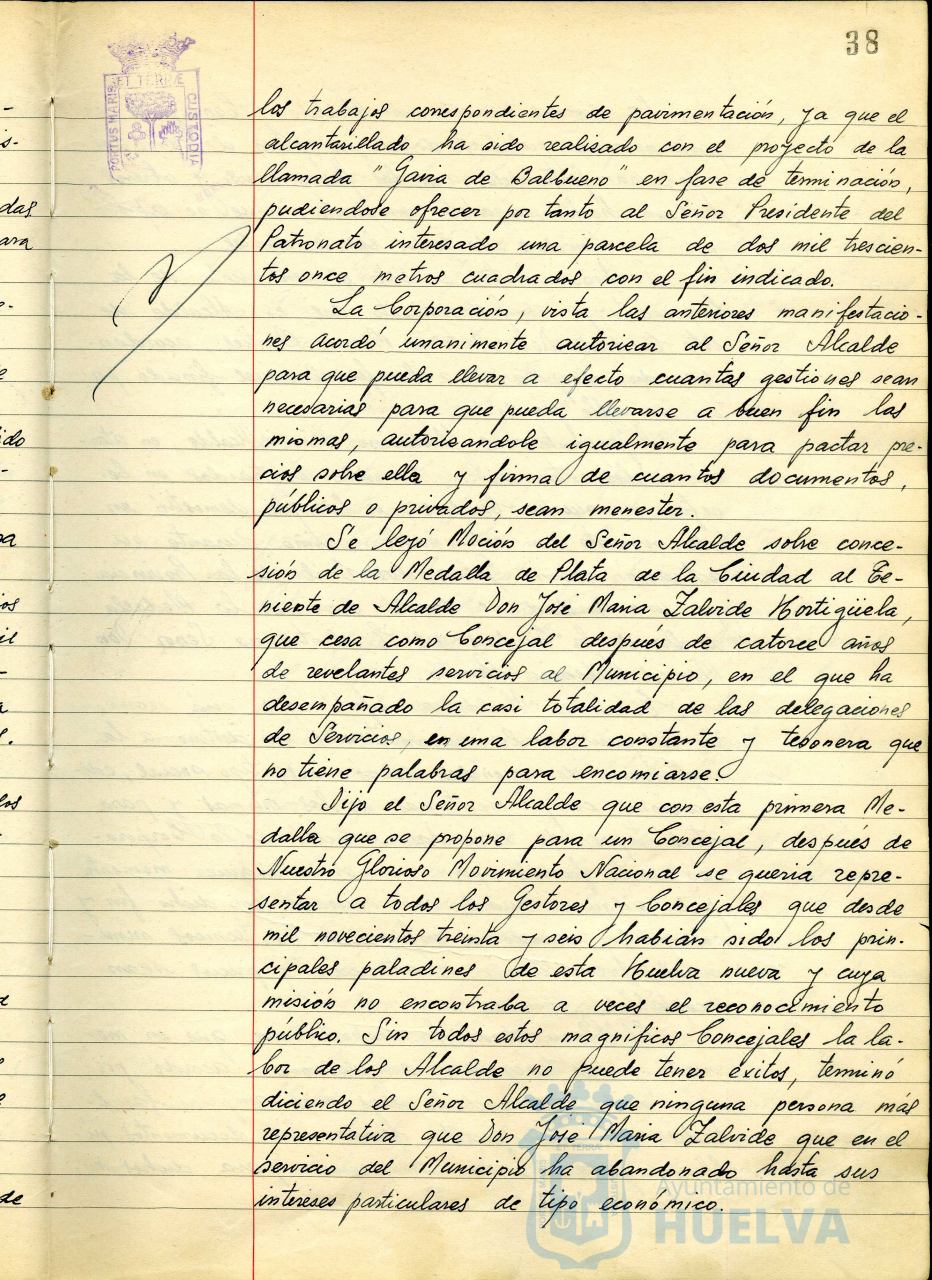 38
PORTUS MARIS ET TERRÆ CUSTODIA
los trabajos correspondientes de pavimentación, ya que el
alcantarillado ha sido realizado con el proyecto de la
llamada "Gavia de Balbueno" en fase de terminación,
pudiendose ofrecer por tanto al Señor Presidente del
Patronato interesado una parcela de dos mil trescien-
tos once metros cuadrados con el fin indicado.
La Corporación, vista las anteriores manifestacio-
nes acordó unanimente autorizar al Señor Alcalde
para que pueda llevar a efecto cuantas gestiones sean
necesarias para que pueda llevarse a buen fin las
mismas, autorisandole igualmente para pactar pre-
cios sobre ella y firma de cuantos documentos,
públicos o privados, sean menester.
Se leyó Moción del Señor Alcalde sobre conce-
sión de la Medalla de Plata de la Ciudad al Te-
niente de Alcalde Don José Maria Zalvide Hortigüela,
que cesa como Concejal después de catorce años
de revelantes servicios al Municipio, en el que ha
desempañado la casi totalidad de las delegaciones
de Servicios, en una labor constante y tesonera que
no tiene palabras para encomiarse.
Dijo el Señor Alcalde que con esta primera Me-
dalla que se propone para un Concejal, después de
Nuestro Glorioso Movimiento Nacional se queria repre-
sentar a todos los Gestores y Concejales que desde
mil novecientos treinta y seis habian sido los prin-
cipales paladines de esta Huelva nueva y cuya
misión no encontraba a veces el reconocimiento
público. Sin todos estos magnificos Concejales la la-
bor de los Alcalde no puede tener exitos, terminó
diciendo el Señor Alcalde que ninguna persona más
representativa que Don José Maria Zalvide que en el
servicio del Municipio ha abandonado hasta sus
intereses particulares de tipo económico.
Ayuntamiento de
HUELVA